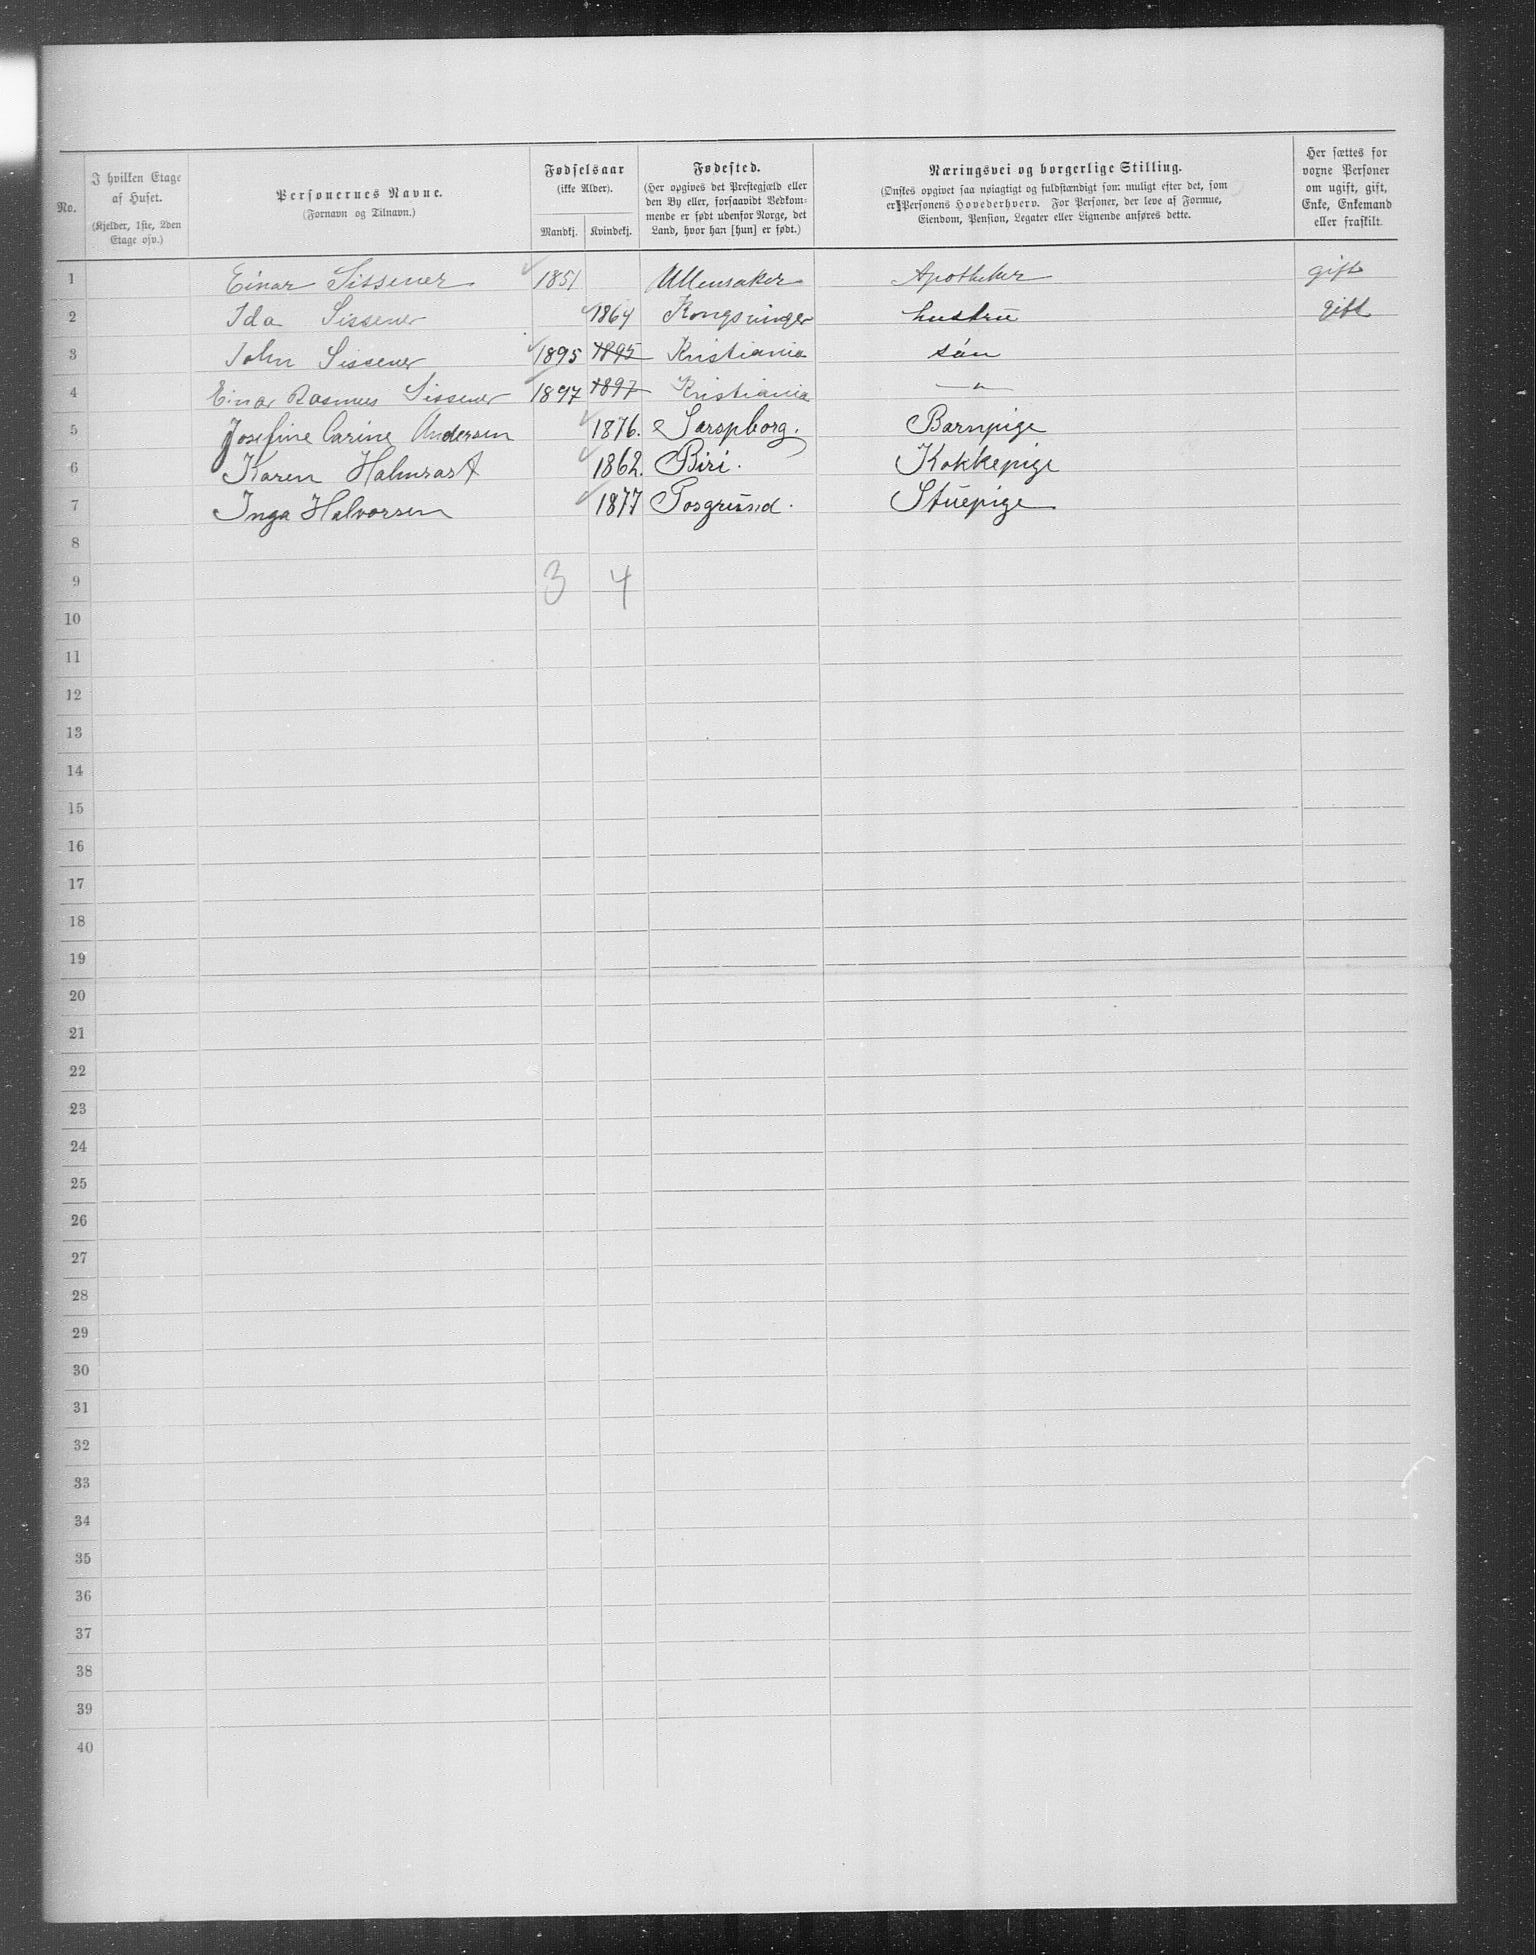 No. | I hvilken Etage af Huset. (Kjelder, 1ste, 2den Etage osv.) | Personernes Navne. (Fornavn og Tilnavn.) | Fødselsaar (ikke Alder). Mandkj. | Kvindekj. | Fødested. (Her opgives det Prestegjæld eller den By eller, forsaavidt Vedkommende er født udenfor Norge, det Land, hvor han [hun] er født.) | Næringsvei og borgerlige Stilling. (Ønskes opgivet saa nøiagtigt og fuldstændigt som muligt efter det, som er Personens Hovederhverv. For Personer, der leve af Formue, Eiendom, Pension, Legater eller Lignende anføres dette. | Her sættes for voxne Personer om ugift, gift, Enke, Enkemand eller fraskilt.
1 Einar Sissener 1851 Ullensaker Apotheker gift
2 Ida Sissener 1864 Kongsvinger hustru gift
3 John Sissener 1895 1895 Kristiania søn
4 Einar Rasmus Sissener 1897 1897 Kristiania —"—
5 Josefine Carine Andersen 1876. Sarspborg. Barnpige
6 Karen Halmrast 1862. Biri. Kokkepige
7 Inga Halvorsen 1877 Posgrund. Stuepige
8
9 3 4
10
11
12
13
14
15
16
17
18
19
20
21
22
23
24
25
26
27
28
29
30
31
32
33
34
35
36
37
38
39
40